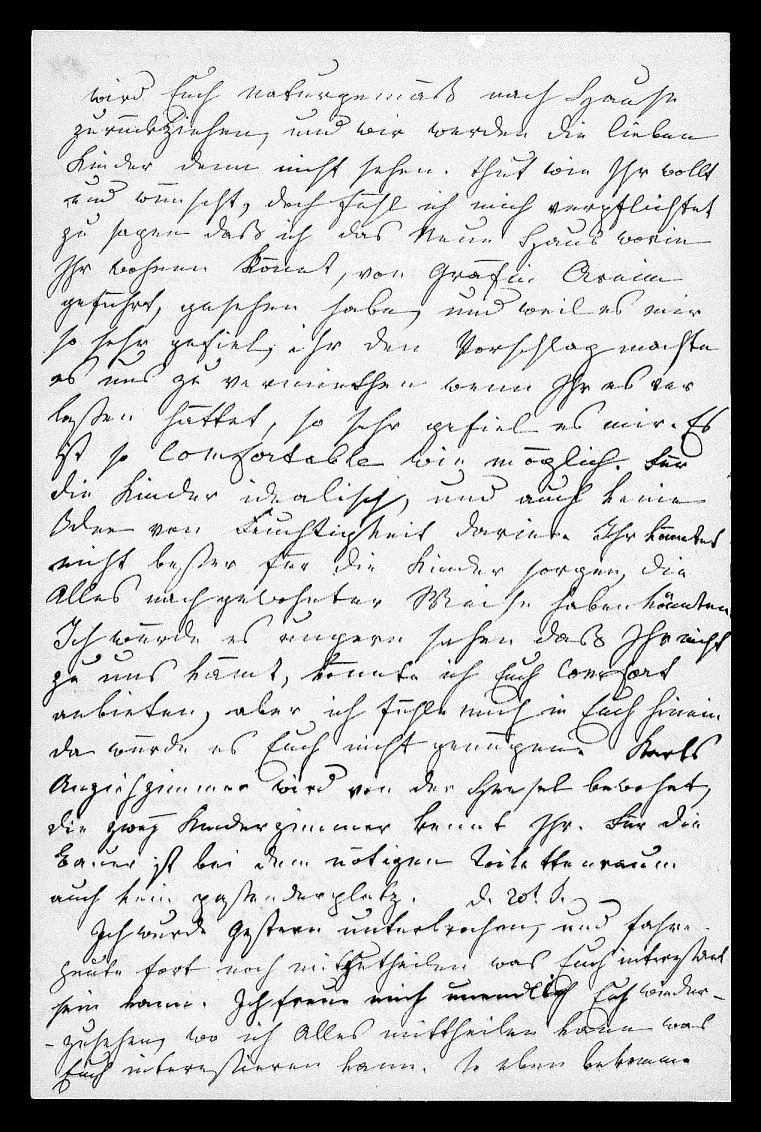 wird Euch naturgemäß nach Hause
zurückziehen, und wir werden die lieben
Kinder denn nicht sehen. Thut wie Ihr wollt
und wünscht, doch fühl ich mich verpflichtet
zu sagen daß ich das Neue Haus worin
Ihr wohnen könnt, von Gräfin Arnim
geführt, gesehen habe, und weil es mir
so sehr gefiel, ihr den Vorschlag machte
es uns zu vermiethen wenn Ihr es ver
laßen hättet, so sehr gefiel es mir. Es
ist so Comfortable wie möglich. Für
die Kinder idealisch, und auch keine
Oder von Feuchtigkeit darin. Ihr könntet
nicht beßer für die Kinder sorgen, die
Alles nach gewohnter Weise haben könnten.
Ich würde es ungern sehen daß Ihr nicht
zu uns kämt, könnte ich Euch Comfort
anbieten, aber ich fühle mich in Euch hinein
da würde es Euch nicht genügen. Karls
Anziehzimmer wird von der Hensel bewohnt,
die zwey Kinderzimmer kennt Ihr. Für die
Bauer ist bei dem nötigen Toilettenraum
auch kein paßender platz. d. 20t.
Ich wurde Gestern unterbrochen, und fahre
heute fort noch mitzutheilen was Euch interessant
sein kann. Ich freue mich unendlich Euch wieder-
-zusehen, wo ich Alles mittheilen kann was
Euch interessieren kann. So eben bekomme